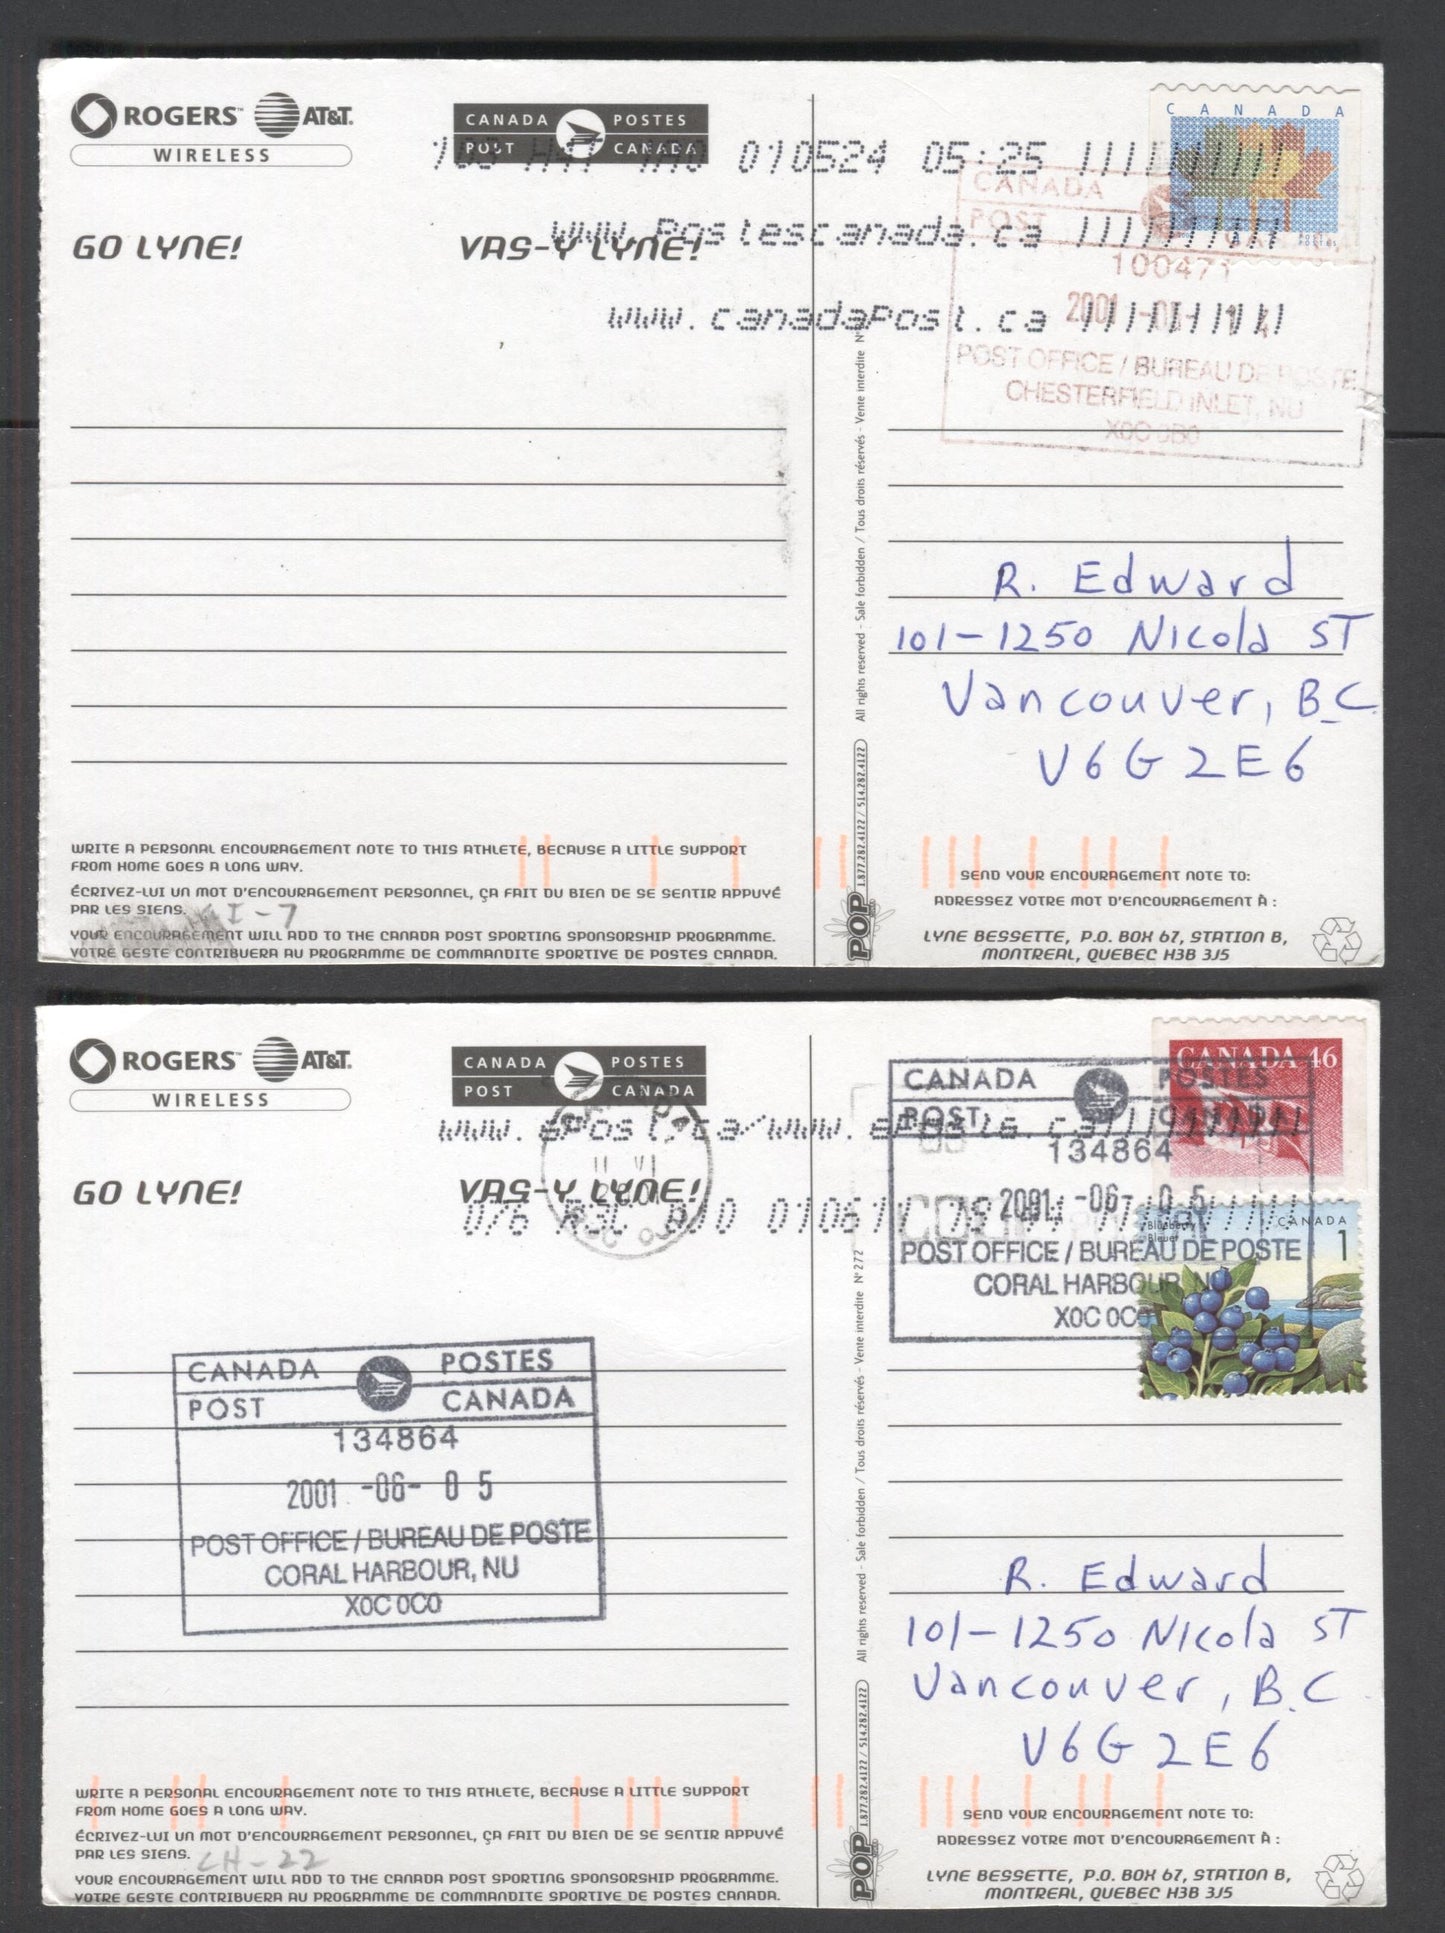 ROGERS™ AT&T.
WIRELESS
CANADA POSTES
POST CANADA
CANADA
010524 05:25
www.Postescanada.ca
www.canadaPost.ca
GO LYNE! VAS-Y LYNE!
CANADA
POST
100471
2001
POST OFFICE / BUREAU DE POSTE
CHESTERFIELD INLET, NU
X0C 0B0
R. Edward
101-1250 Nicola ST
Vancouver, B.C.
V6G 2E6
All rights reserved - Sale forbidden / Tous droits réservés - Vente interdite
1.877.282.4122 / 514.282.4122
POP
WRITE A PERSONAL ENCOURAGEMENT NOTE TO THIS ATHLETE, BECAUSE A LITTLE SUPPORT
FROM HOME GOES A LONG WAY.
ÉCRIVEZ-LUI UN MOT D'ENCOURAGEMENT PERSONNEL, ÇA FAIT DU BIEN DE SE SENTIR APPUYÉ
PAR LES SIENS.
I-7
YOUR ENCOURAGEMENT WILL ADD TO THE CANADA POST SPORTING SPONSORSHIP PROGRAMME.
VOTRE GESTE CONTRIBUERA AU PROGRAMME DE COMMANDITE SPORTIVE DE POSTES CANADA.
SEND YOUR ENCOURAGEMENT NOTE TO:
ADRESSEZ VOTRE MOT D'ENCOURAGEMENT À :
LYNE BESSETTE, P.O. BOX 67, STATION B,
MONTREAL, QUEBEC H3B 3J5
ROGERS™ AT&T.
WIRELESS
CANADA POSTES
POST CANADA
CANADA 46
GO LYNE! VAS-Y LYNE!
CANADA POSTES
POST CANADA
134864
2001 -06- 05
POST OFFICE / BUREAU DE POSTE
CORAL HARBOUR, NU
X0C 0C0
Blueberry
Bleuet
CANADA
1
CANADA POSTES
POST CANADA
134864
2001 -06- 05
POST OFFICE / BUREAU DE POSTE
CORAL HARBOUR, NU
X0C 0C0
R. Edward
101-1250 Nicola ST
Vancouver, B.C
V6G 2E6
All rights reserved - Sale forbidden / Tous droits réservés - Vente interdite N° 272
1.877.282.4122 / 514.282.4122
POP
WRITE A PERSONAL ENCOURAGEMENT NOTE TO THIS ATHLETE, BECAUSE A LITTLE SUPPORT
FROM HOME GOES A LONG WAY.
ÉCRIVEZ-LUI UN MOT D'ENCOURAGEMENT PERSONNEL, ÇA FAIT DU BIEN DE SE SENTIR APPUYÉ
PAR LES SIENS.
CH-22
YOUR ENCOURAGEMENT WILL ADD TO THE CANADA POST SPORTING SPONSORSHIP PROGRAMME.
VOTRE GESTE CONTRIBUERA AU PROGRAMME DE COMMANDITE SPORTIVE DE POSTES CANADA.
SEND YOUR ENCOURAGEMENT NOTE TO:
ADRESSEZ VOTRE MOT D'ENCOURAGEMENT À :
LYNE BESSETTE, P.O. BOX 67, STATION B,
MONTREAL, QUEBEC H3B 3J5